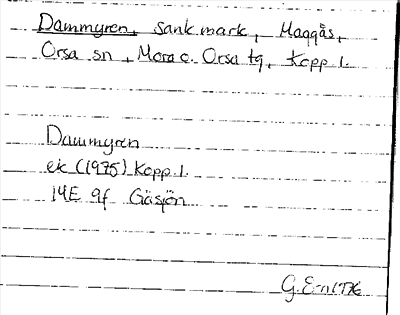 Dammyren, sank mark, Maggås,
Orsa sn, Mora o. Orsa tg, Kopp l.
Dammyren
ek (1975) Kopp l.
14E 9f Gåsjön